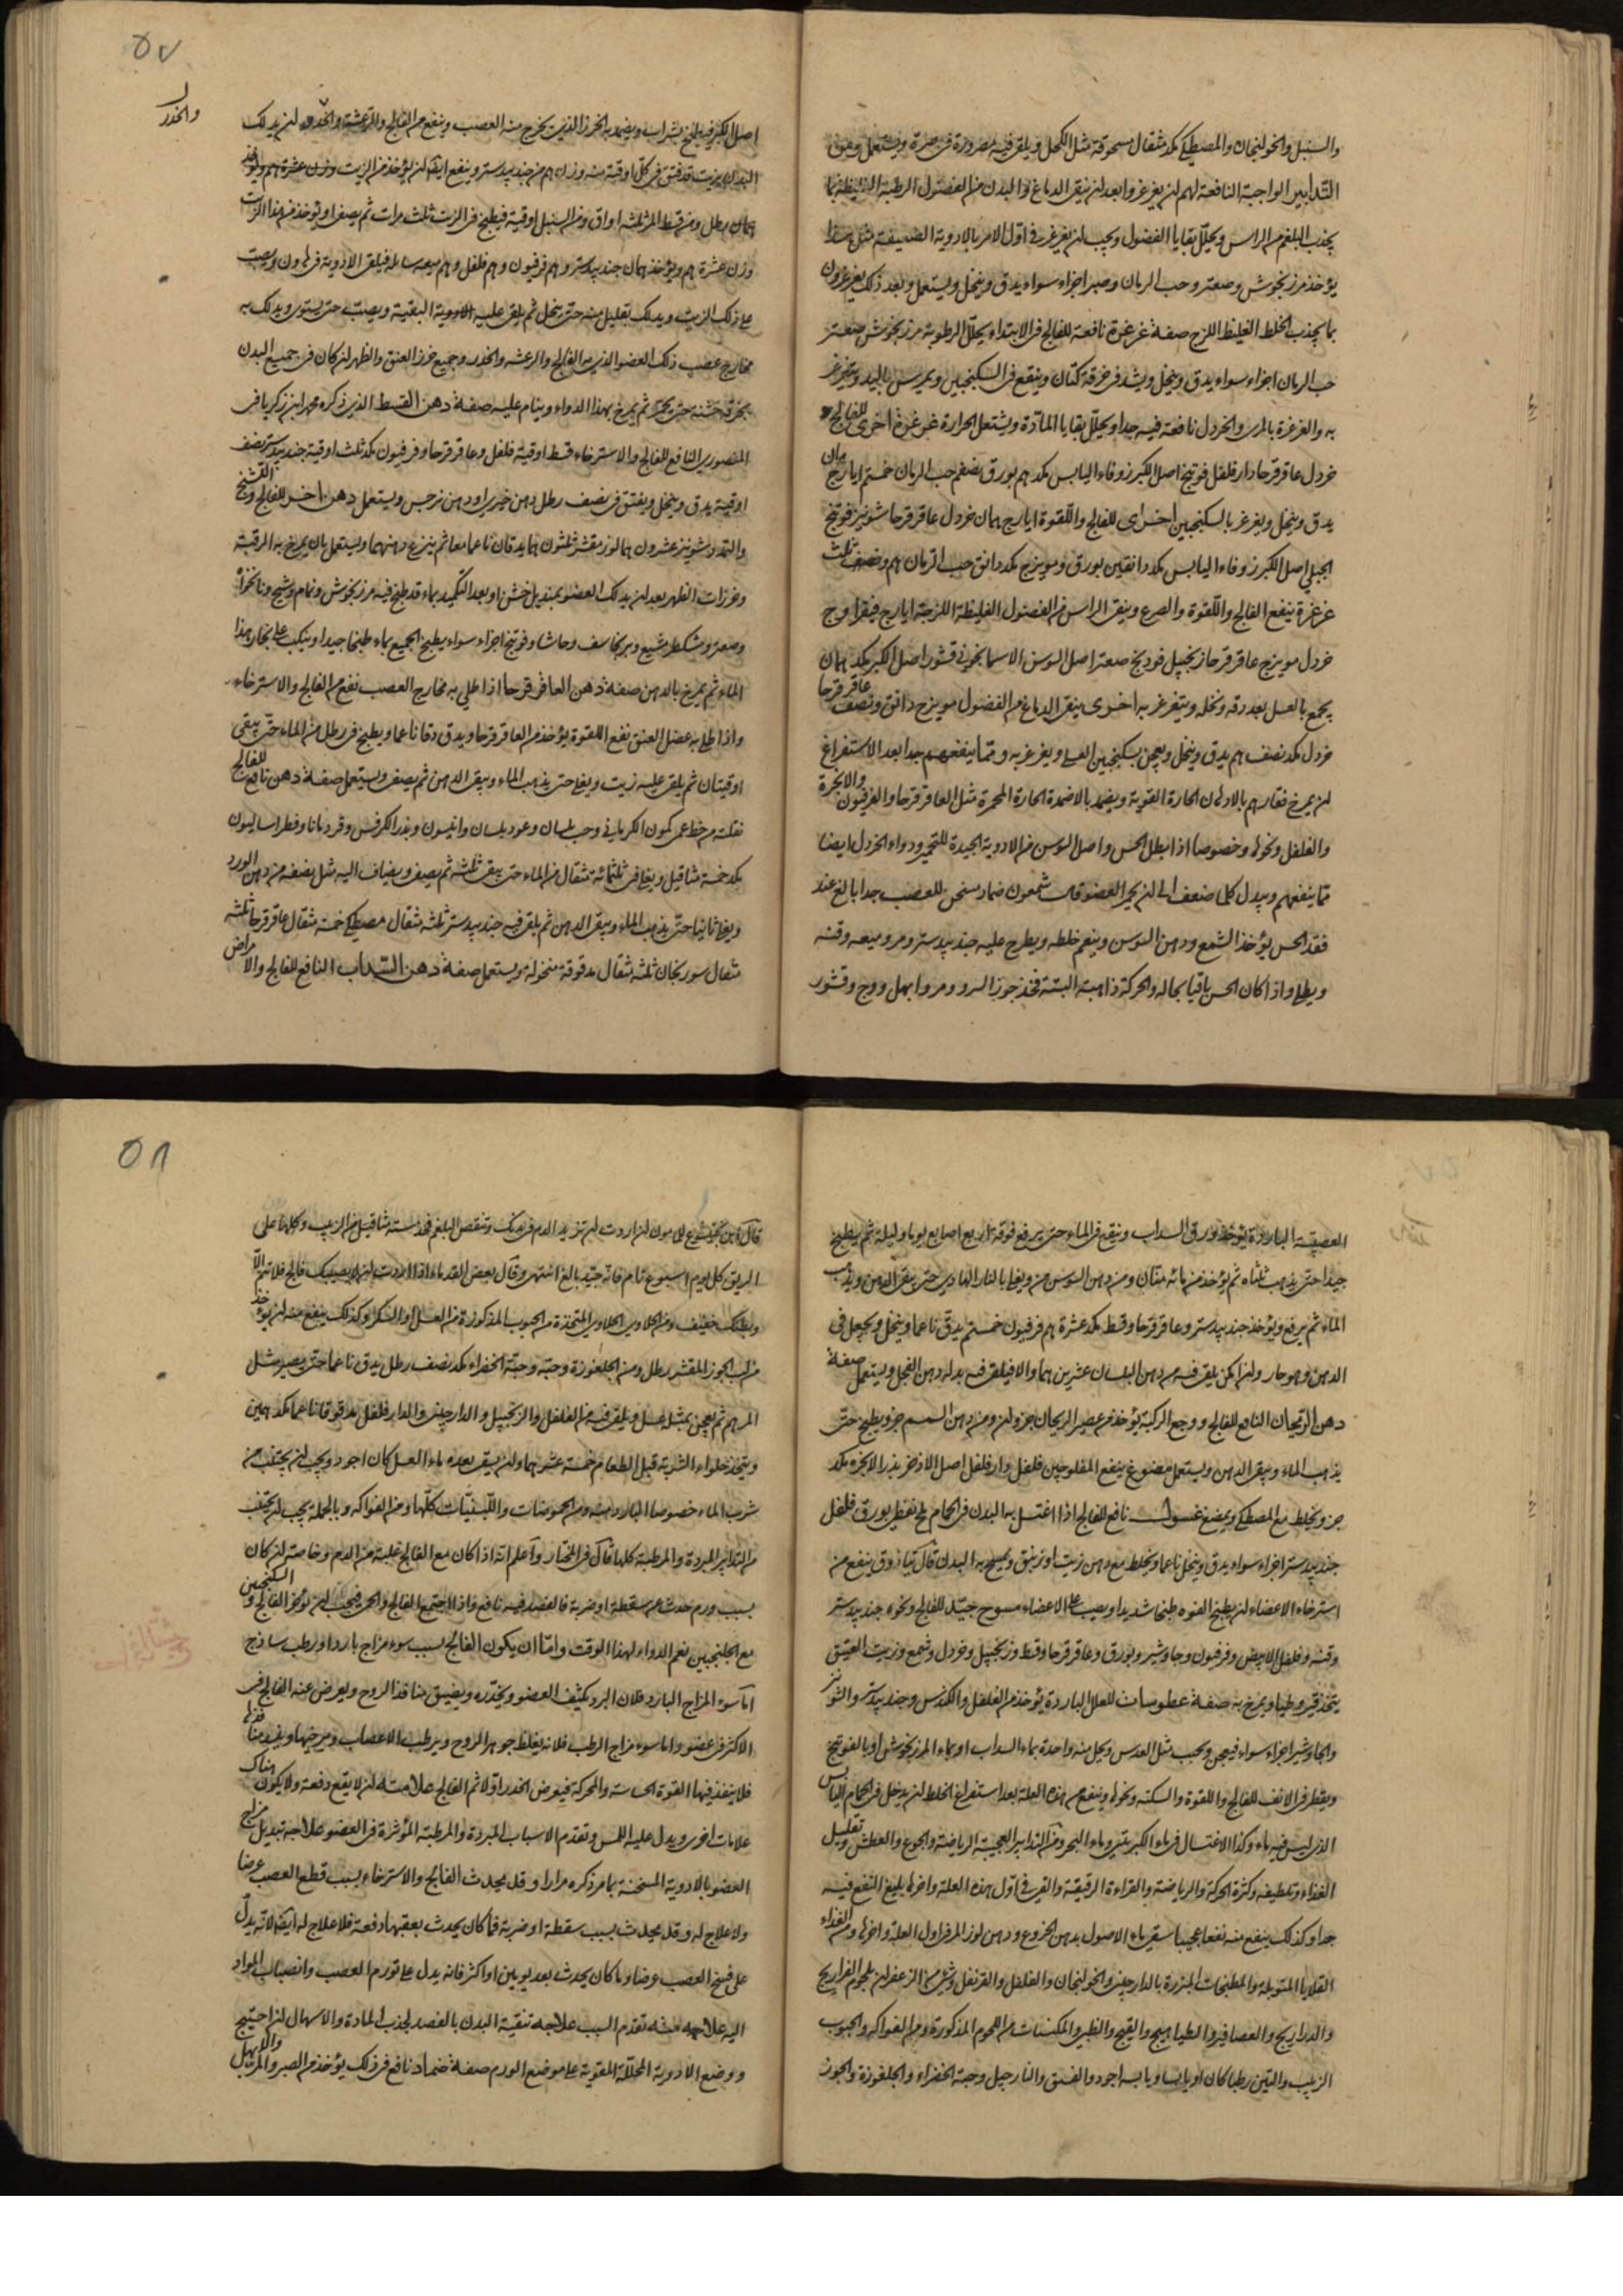 والسنبل والخولنجان والمصطكي مكد مثقال مسحوقة مثل الكحل ويلقى فيه مصرورة في صرة ويستعمل ومن
التدابير الواجبة النافعة لهم ان يغرغروا بعد ان ينقى الدماغ والبدن من الفضول الرطبة الغليظة بما
يجذب البلغم من الراس ويحلل بقايا الفضول ويجب ان يغرغر في اول الامر بالادوية الضعيفة مثل هذا
يؤخذ مرزنجوش وصعتر وحب الرمان وصبر اجزاء سواء يدق وينخل ويستعمل وبعد ذلك يغرغرون
بما يجذب الخلط الغليظ اللزج صفة غرغرة نافعة للفالج في الابتداء يحلل الرطوبة مرزنجوش صعتر
حب الرمان اجزاء سواء يدق وينخل ويشد في خرقة كتان وينقع في السكنجبين ويمرس باليد ويتغرغر
به والغرغرة بالمرى والخردل نافعة فيه جدا ويحلل بقايا المادة ويشتعل الحرارة غرغرة اخرى للفالج
خردل عاقرقرحا دارفلفل فوتنج اصل الكبر زوفاء اليابس مكد هم بورق نصفهم حب الرمان خمسهم ايارج
يدق وينخل ويغرغر بالسكنجبين اخرى للفالج واللقوة ايارج همان خردل عاقرقرحا شونيز فوتنج
الجبلي اصل الكبر زوفاء اليابس مكد دانقين بورق وميويزج مكد دانق حب الرمان هم ونصف ثلث
غرغرة ينفع الفالج واللقوة والصرع وينقى الراس من الفضول الغليظة اللزجة ايارج فيقرا وج
خردل مويزج عاقرقرحا زنجبيل فودنج صعتر اصل السوسن الاسمانجونى قشور اصل الكبر مكد همان
يجمع بالعسل بعد دقه ونخله ويتغرغر به اخرى ينقى الدماغ من الفضول مويزج دانق ونصف عاقرقرحا
خردل مكد نصف هم يدق وينخل ويعجن بسكنجبين العسلى ويغرغر به ومما ينفعهم جدا بعد الاستفراغ
ان يمرخ فقارهم بالادهان الحارة القوية ويضمد بالاضمدة الحارة المحمرة مثل العاقرقرحا والفرفيون والابخرة
والفلفل ونحوها وخصوصا اذا بطل الحس واصل السوسن من الادوية الجيدة للتخمير ودواء الخردل ايضا
مما ينفعهم ويبدل كلما ضعف الى ان يحمر العضو قال شمعون ضماد مسخن للعصب جدا بالغ عند
فقد الحس يؤخذ الشمع ودهن السوسن وينعم خلطه ويطرح عليه جندبيدستر ومر وميعه وقنه
ويطلى واذا كان الحس باقيا بحاله والحركة ذاهبة البتة فخذ جوز السرو ومر وابهل ووج وقشور
٥٧
والخدر
اصل الكبر فيطبخ بشراب ويضمد به الخرز الذى يخرج منه العصب وينفع من الفالج والرعشة والخدر ان يدلك
البدن بزيت قد فتق في كل اوقية منه وزن هم من جندبيدستر وينفع ايضا ان يؤخذ من الزيت وزن عشرة هم ويؤخذ
همان بطل ومن قسط المر ثلثه اواق ومن السنبل اوقية فيطبخ في الزيت ثلث مرات ثم يصفى ويؤخذ من هذا الزيت
وزن عشرة هم ويؤخذ همان جندبيدستر وهم فرفيون وهم فلفل وهم ميعه سائله فيلقى الادوية في هاون ويصب
على ذلك الزيت ويدلك بقليل منه حتى ينحل ثم يلقى عليه الادوية البقية ويصب حتى يستوى ويدلك به
مخارج عصب ذلك العضو الذى به الفالج والرعشه والخدر وجميع خرز العنق والظهر ان كان في جميع البدن
بخرقة خشنه حتى يحمر ثم يمرخ بهذا الدواء وينام عليه صفة دهن القسط الذى ذكره محمد ابن زكريا في
المنصورى النافع للفالج والاسترخاء قسط اوقية فلفل وعاقرقرحا وفرفيون مكد ثلث اوقية جندبيدستر نصف
اوقية يدق وينخل ويفتق في نصف رطل دهن خيرى او دهن نرجس ويستعمل دهن اخر للفالج والتشنج
والتمدد شونيز عشرون هما لوز مقشر ثلثون هما يدقان ناعما معا ثم ينزع دهنهما ويستعمل بان يمرخ به الرقبة
وخرزات الظهر بعد ان يدلك العضو بمنديل خشن او بعد التكميد بماء قد طبخ فيه مرزنجوش ونمام وشيح ونانخواه
وصعتر ومشكطرمشيع وبرنجاسف وحاشا وفوتنج اجزاء سواء يطبخ الجميع بماء طبخا جيدا وينكب على بخار هذا
الماء ثم يمرخ بالدهن صفة دهن العاقرقرحا اذا طلى به مخارج العصب نفع من الفالج والاسترخاء
واذا طلى به عضل العنق نفع اللقوة يؤخذ من العاقرقرحا ويدق دقا ناعما ويطبخ في رطل من الماء حتى يبقى
اوقيتان ثم يلقى عليه زيت ويغلى حتى يذهب الماء ويبقى الدهن ثم يصفى ويستعمل صفة دهن نافع للفالج
نقلته من خط عمى كمون الكرمانى وحب بلسان وعود بلسان وانيسون وبذر الكرفس وقردمانا وفطراساليون
مكد خمسة مثاقيل ويغلى في ثلثمائة مثقال من الماء حتى يبقى ثلثه ثم يصفى ويضاف اليه مثل نصفه من دهن الورد
ويغلى ثانيا حتى يذهب الماء ويبقى الدهن ثم يلقى فيه جندبيدستر ثلثه مثقال مصطكي خمسة مثقال عاقرقرحا ثلثه
مثقال سورنجان ثلثه مثقال مدقوقة منخولة ويستعمل صفة دهن السداب النافع للفالج والامراض
العصبية الباردة يؤخذ ورق السداب وينقع في الماء حتى يرتفع فوقه اربع اصابع يوما وليلة ثم يطبخ
جيدا حتى يذهب ثلثاه ثم يؤخذ من مائه منان ومن دهن السوسن من ويغلى بالنار الهادى حتى يبقى الدهن ويذهب
الماء ثم يرفع ويؤخذ جندبيدستر وعاقرقرحا وقسط مكد عشرة هم فرفيون خمسهم يدق ناعما وينخل ويجعل فى
الدهن وهو حار وان امكن يلقى فيه من دهن البلسان عشرين هما والا فيلقى فيه بدله دهن الفجل ويستعمل صفة
دهن الريحان النافع للفالج ووجع الركبة يؤخذ من عصير الريحان جزوان ومن دهن السمسم جزو يطبخ حتى
يذهب الماء ويبقى الدهن ويستعمل مضوغ ينفع المفلوجين فلفل دارفلفل اصل الاذخر بذر الانجره مكد
جزو يخلط مع المصطكي ويمضغ غسول نافع للفالج اذا اغتسل به البدن في الحمام ملح نفطى بورق فلفل
جندبيدستر اجزاء سواء يدق وينخل ناعما ويخلط مع دهن زيت او زنبق ويمسح به البدن قال تياذوق ينفع من
استرخاء الاعضاء ان يطبخ الفوه طبخا شديدا ويصب على الاعضاء مسوح جيد للفالج ونحوه جندبيدستر
وقنه وفلفل الابيض وفرفيون وجاوشير وبورق وعاقرقرحا وقسط وزنجبيل وخردل وشمع وزيت العتيق
يتخذ قيروطيا ويمرخ به صفة عطوسات للعلل الباردة يؤخذ من الفلفل والكندس وجندبيدستر والشونيز
والجاوشير اجزاء سواء فيعجن ويحبب مثل العدس ويحل منه واحدة بماء السداب او بماء المرزنجوش او بالفوتنج
ويقطر في الانف للفالج واللقوة والسكته ونحوها وينفع من هذه العلة بعد استفراغ الخلط ان يدخل في الحمام اليابس
الذى ليس فيه ماء وكذا الاغتسال في ماء الكبريتى وماء البحر ومن التدابير العجيبة الرياضة والجوع والعطش وتقليل
الغذاء وتلطيفه وكثرة الحركة والرياضة والقراءة الرقيقة والقى في اول هذه العلة واخرها بليغ النفع فيه
جدا وكذلك ينفع منه نفعا عجيبا سقى ماء الاصول بدهن الخروع ودهن لوز المر في اول العلة واخرها ومن الغذاء
القلايا المتوبلة والمطبخات المبزرة بالدارچينى والخولنجان والفلفل والقرنفل وشئ من الزعفران بلحوم الفراريج
والدراريج والعصافير والطياهيج والقبج والظبى والمكسنات من اللحوم المذكورة ومن الفواكه والحبوب
الزبيب والتين رطبا كان او يابسا ويابسه اجود والفستق والنارجيل وحبة الخضراء والجلغوزة والجوز
٥٨
قال ابن بختيشوع للمامون ان اردت ان تزيد الدم في بدنك وتنقص البلغم فخذ ستة مثاقيل من الزبيب وكلها على
الريق كل يوم اسبوع تام فانه جيد بالغ اشتهر وقال بعض القدماء اذا اردت ان لا يصيبك فالج فلا تنم الا
وبطنك خفيف ومن الحلاوى الحلاوى المتخذة من الحبوب المذكورة من العسل او السكر وكذلك ينفع منه ان يؤخذ
من لب الجوز المقشر رطل ومن الجلغوزة وحبه وحبة الخضراء مكد نصف رطل يدق ناعما حتى يصير مثل
المرهم ثم يعجن بمثله عسل ويلقى فيه من الفلفل والزنجبيل والدارچينى والدارفلفل مدقوقا ناعما مكد همين
ويتخذ حلواء الشربة قبل الطعام خمسة عشر هما وان يسقى بعده ماء العسل كان اجود ويجب ان يجتنب من
شرب الماء خصوصا البارد منه ومن الحموضات واللبنيات كلها ومن الفواكه وبالجملة يجب ان يجتنب
من التدابير المبردة والمرطبة كلها قال في المختار واعلم انه اذا كان مع الفالج غلبة من الدم وخاصة ان كان
بسبب ورم حدث عن سقطة او ضربة فالفصد فيه نافع واذا اجتمع الفالج والحمى فيجب ان تؤخر الفالج والسكنجبين
مع الجلنجبين نعم الدواء لهذا الوقت واما ان يكون الفالج بسبب سوء مزاج بارد او رطب ساذج
اما سوء المزاج البارد فلان البرد يكثف العضو ويخدره ويضيق منافذ الروح ويعرض عنه الفالج في
الاكثر في عضو واما سوء مزاج الرطب فلانه يغلظ جوهر الروح ويرطب الاعصاب ويرخيها ويفسد منافذها
فلا ينفذ فيها القوة الحساسة والمحركة فيعرض الخدر اولا ثم الفالج علامته ان لا يقع دفعة ولا يكون هناك
علامات اخرى ويدل عليه اللمس وتقدم الاسباب المبردة والمرطبة المؤثرة في العضو علاجه تبديل مزاج
العضو بالادوية المسخنة بما مر ذكره مرارا وقد يحدث الفالج والاسترخاء بسبب قطع العصب عرضا
ولا علاج له وقد يحدث بسبب سقطة او ضربة فما كان يحدث بعقبهما دفعة فلا علاج له ايضا لانه يدل
على فسخ العصب عرضا وما كان يحدث بعد يومين او اكثر فانه يدل على تورم العصب وانصباب المواد
اليه علامته تقدم السبب علاجه تنقية البدن بالفصد لجذب المادة والاسهال ان احتيج
ووضع الادوية المحللة المقوية على موضع الورم صفة ضماد نافع في ذلك يؤخذ من الصبر والمر والابهل